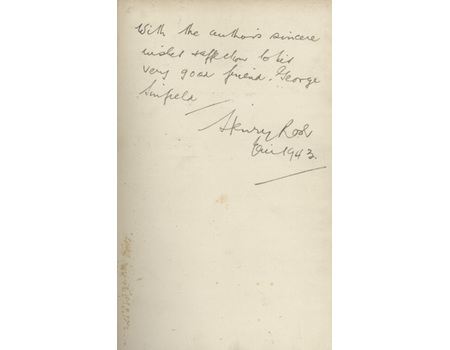 With the authors sincere
wishes & affection to his
very good friend. George
Sinfield
Henry Rose
1943.